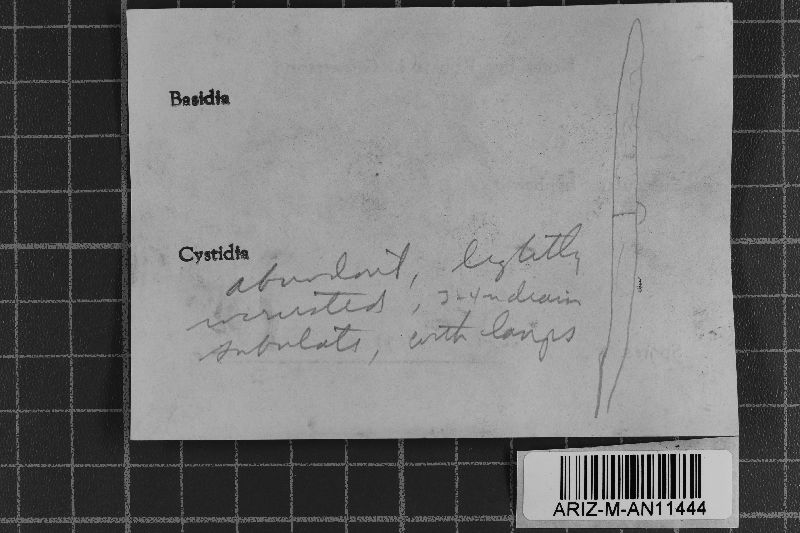 Basidia
Cystidia
abundant, lightly
incrusted, 3-4 µ diam
subulate, with lamps
ARIZ-M-AN11444